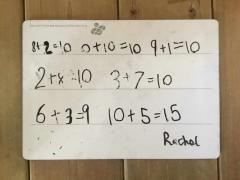 8+2=10 0+10=10 9+1=10
2+8=10 3+7=10
6+3=9 10+5=15
Rachel